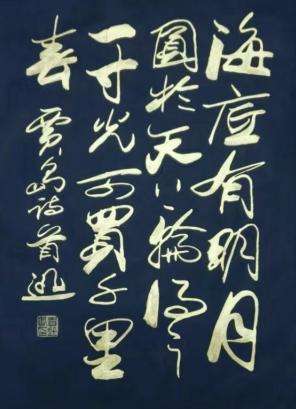 海底有明月
圓於天上輪得之
一寸光可買千里
春
賈島詩